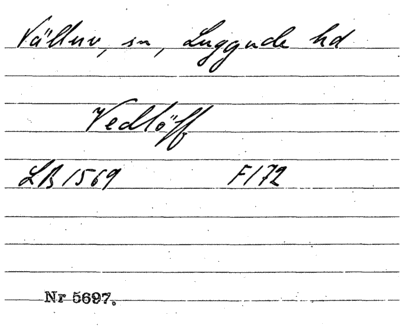 Välluv, sn, Luggude hd
Vedlöff
LB 1569 F172
Nr 5697.